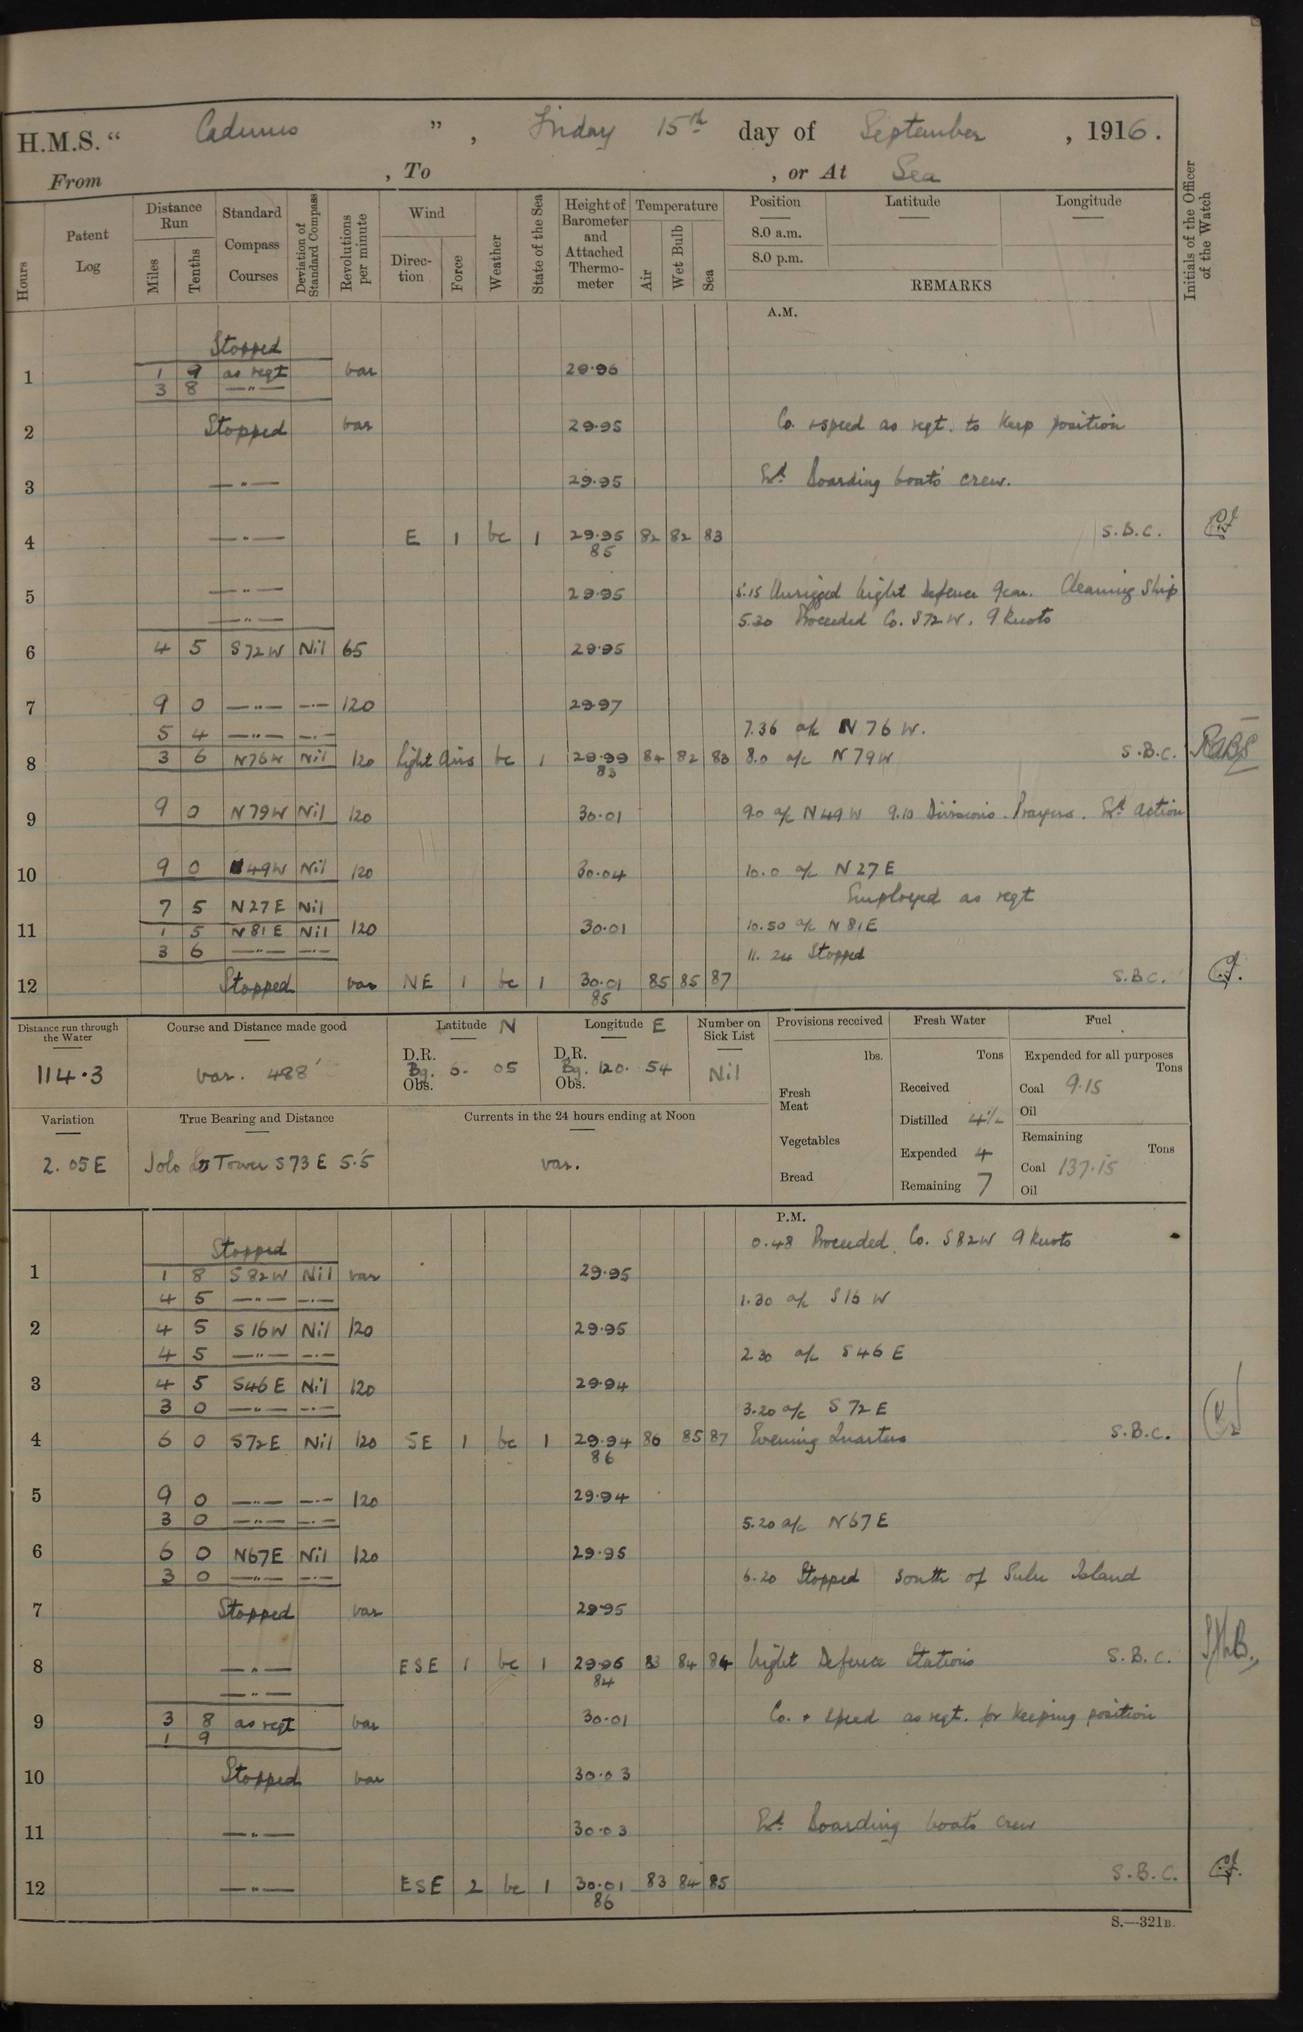 H.M.S. " Cadmus ", Friday 15th day of September, 1916.
From , To , or At Sea
Hours
Patent Log
Distance Run
Miles
Tenths
Standard Compass Courses
Deviation of Standard Compass
Revolutions per minute
Wind
Direction
Force
Weather
State of the Sea
Height of Barometer and Attached Thermometer
Temperature
Air
Wet Bulb
Sea
Position
8.0 a.m.
8.0 p.m.
Latitude
Longitude
REMARKS
Initials of the Officer of the Watch
A.M.
Stopped
1 1 9 as reqt var 29.96
3 8 —"—
2 Stopped var 29.95 Co. + speed as reqt. to keep position
3 —"— 29.95 Exd Boarding boats crew.
4 —"— E 1 bc 1 29.95 82 82 83 S.B.C.
85
5 —"— 29.95 5.15 Unrigged Night Defence gear. Cleaning Ship
—"— 5.30 Proceeded Co. S72W. 9 knots
6 4 5 S72W Nil 65 29.95
7 9 0 —"— —"— 120 29.97
5 4 —"— —"— 7.36 a/c N76W.
8 3 6 N76W Nil 120 Light Airs bc 1 29.99 84 82 83 8.0 a/c N79W S.B.C.
83
9 9 0 N79W Nil 120 30.01 9.0 a/c N49W 9.10 Divisions. Prayers. Exd action
10 9 0 N49W Nil 120 30.04 10.0 a/c N27E
Employed as reqt
7 5 N27E Nil
11 1 5 N81E Nil 120 30.01 10.50 a/c N81E
3 6 —"— —"— 11.24 Stopped
12 Stopped var NE 1 bc 1 30.01 85 85 87 S.B.C.
85
Distance run through the Water
114.3
Course and Distance made good
var. 488'
Latitude N
D.R.
Bg. 6. 05
Obs.
Longitude E
D.R.
Bg. 120. 54
Obs.
Number on Sick List
Nil
Provisions received
lbs.
Fresh Meat
Vegetables
Bread
Fresh Water
Tons
Received
Distilled 4½
Expended 4
Remaining 7
Fuel
Expended for all purposes
Tons
Coal 9.15
Oil
Remaining
Tons
Coal 137.15
Oil
Variation
2.05E
True Bearing and Distance
Jolo Tower S73E 5.5
Currents in the 24 hours ending at Noon
var.
P.M.
Stopped 0.48 Proceeded. Co. S82W 9 knots
1 1 8 S82W Nil var 29.95
4 5 —"— —"— 1.30 a/c S16W
2 4 5 S16W Nil 120 29.95
4 5 —"— —"— 2.30 a/c S46E
3 4 5 S46E Nil 120 29.94
3 0 —"— —"— 3.20 a/c S72E
4 6 0 S72E Nil 120 SE 1 bc 1 29.94 86 85 87 Evening Quarters S.B.C.
86
5 9 0 —"— —"— 120 29.94
3 0 —"— —"— 5.20 a/c N67E
6 6 0 N67E Nil 120 29.95
3 0 —"— —"— 6.20 Stopped South of Sulu Island
7 Stopped var 29.95
8 —"— ESE 1 bc 1 29.96 83 84 84 Night Defence Stations S.B.C.
84
—"—
9 3 8 as reqt var 30.01 Co. + speed as reqt. for keeping position
1 9
10 Stopped var 30.03
11 —"— 30.03 Exd Boarding boats crew
12 —"— ESE 2 bc 1 30.01 83 84 85 S.B.C.
86
S.—321B.